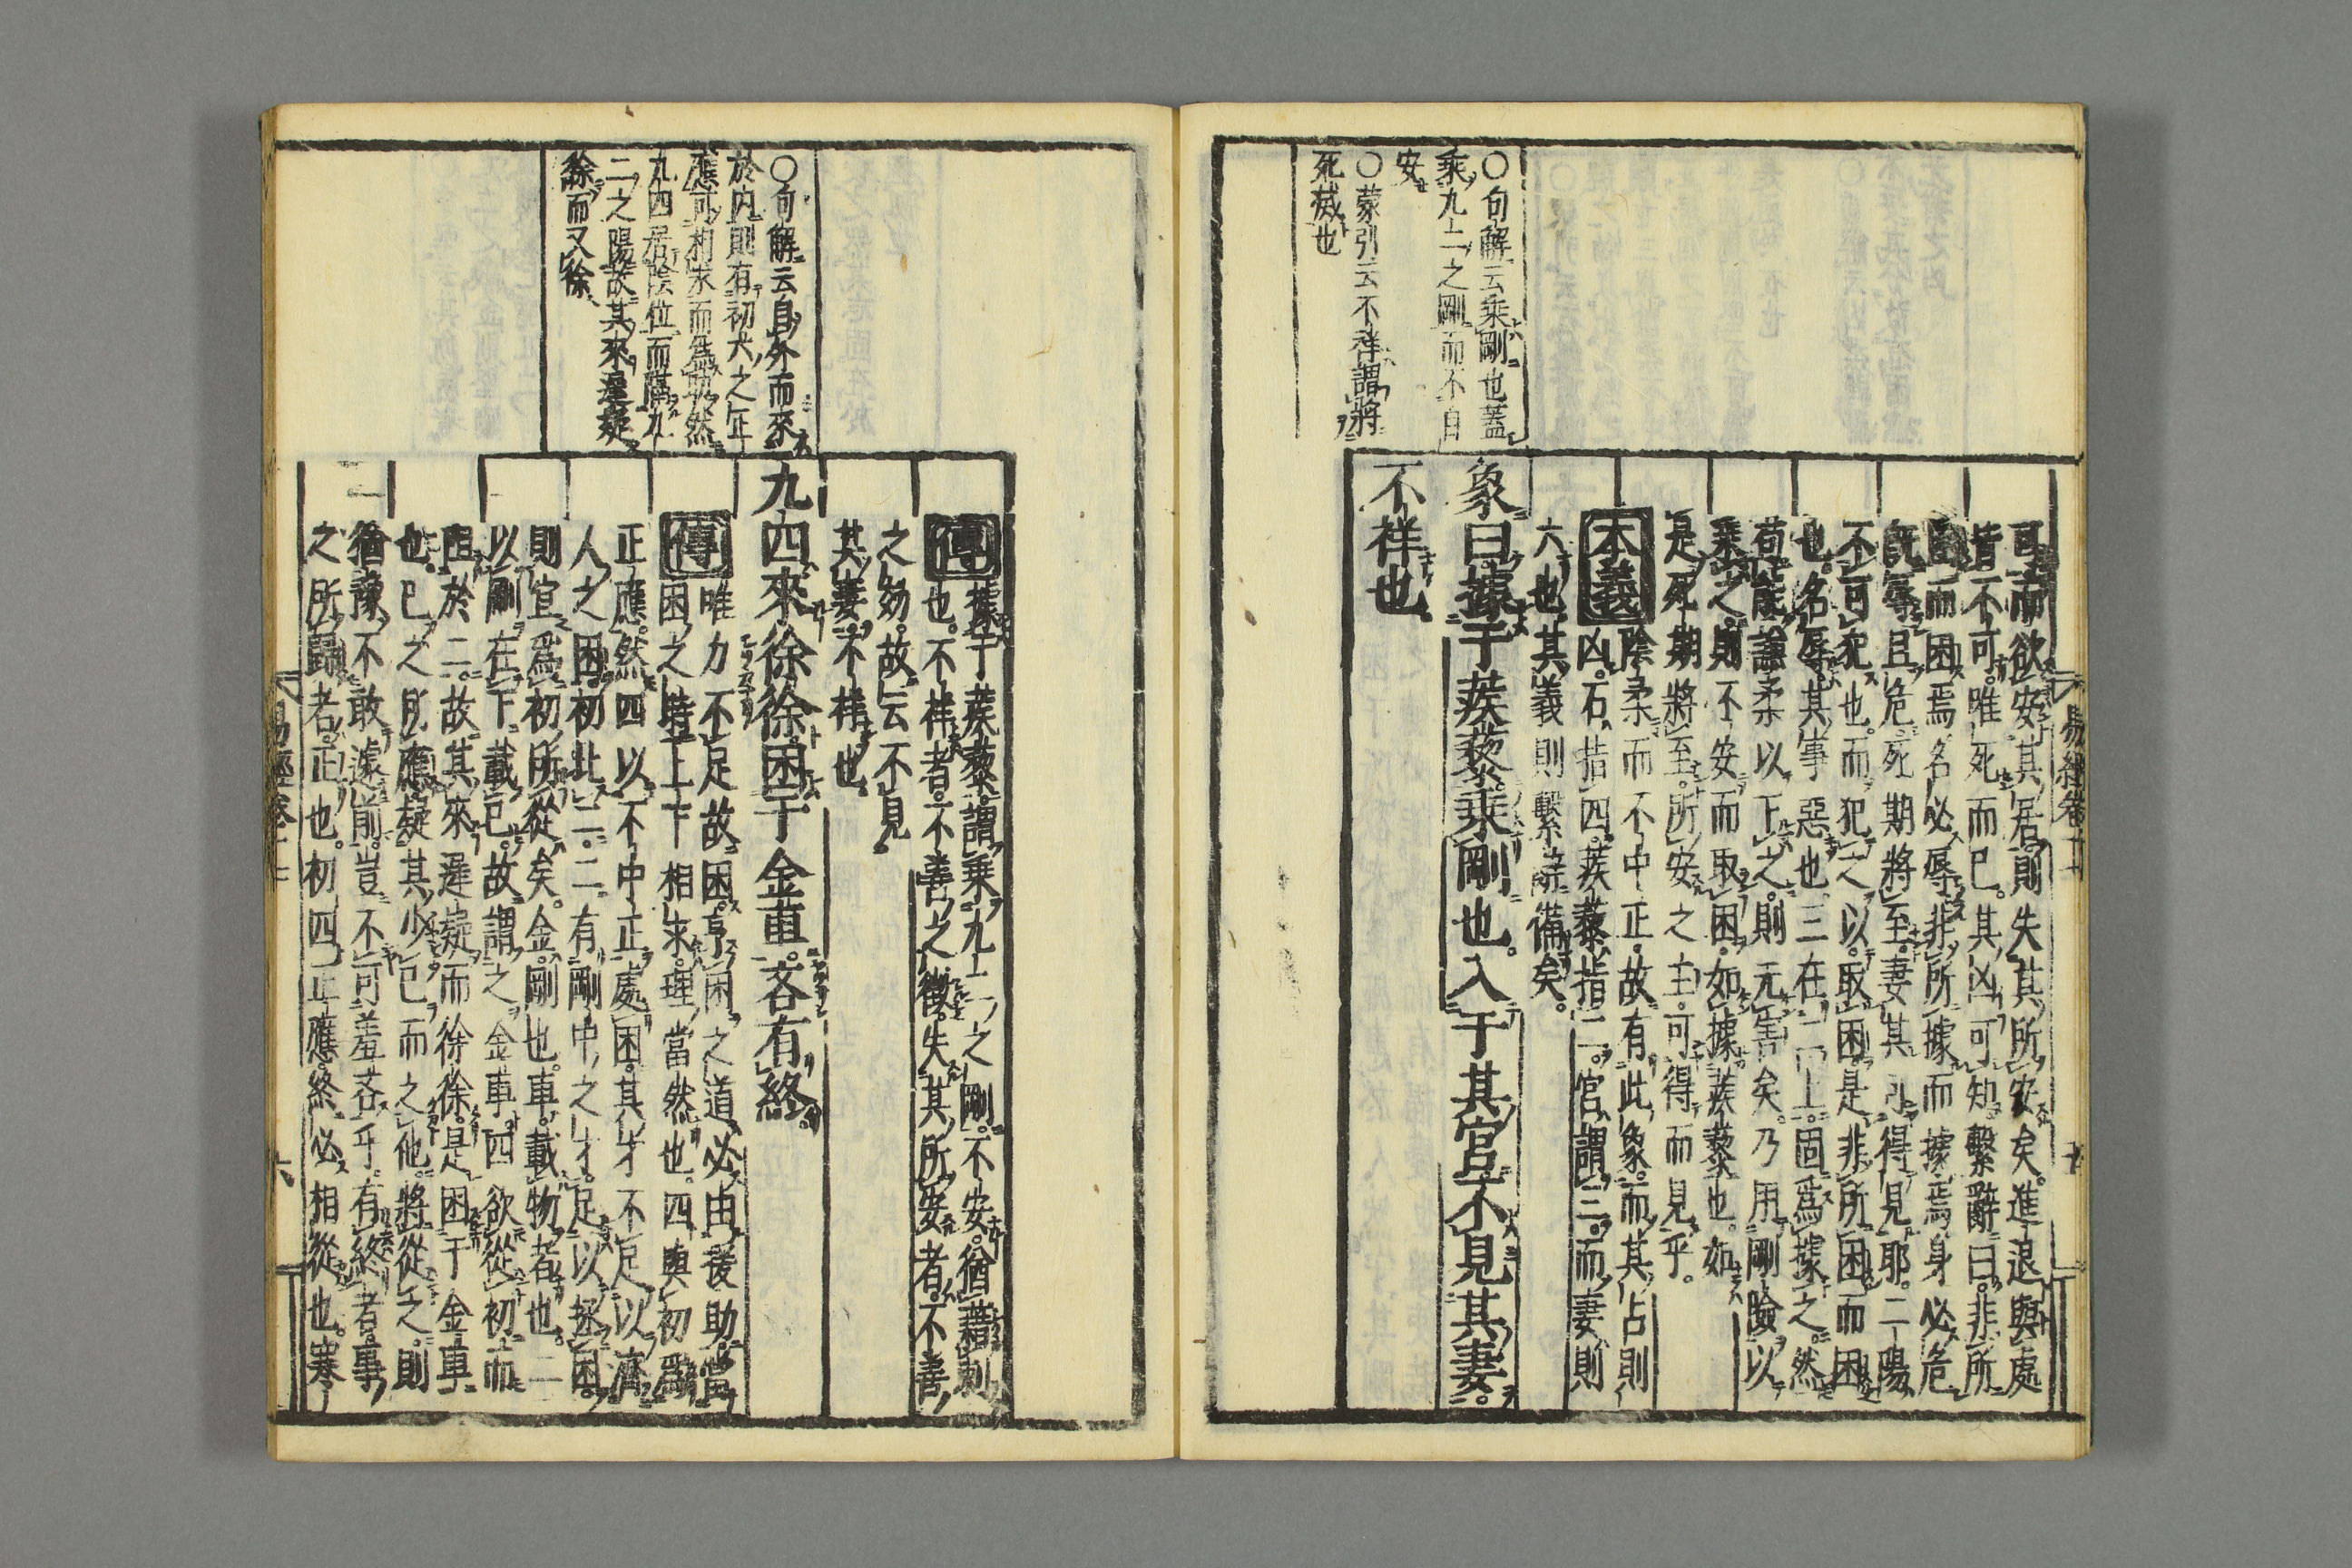 易經卷十二
可而欲安其居則失其所安矣。進退與處
皆不可。唯死而已。其凶可知。繫辭曰。非所
困而困焉。名必辱。非所據而據焉。身必危。
既辱且危。死期將至。妻其可得見耶。二陽
不可犯也。而犯之以取困。是非所困而困
也。名辱。其事惡也。三在二上。固爲據之。然
苟能謙柔以下之。則无害矣。乃用剛險以
乘之。則不安而取困。如據蒺藜也。如
是死期將至。所安之主。可得而見乎。
本義
陰柔而不中正。故有此象。而其占則
凶。石。指四。蒺藜。指二。宮。謂三。而妻則
六也。其義則繫辭備矣。
象曰。據于蒺藜。乘剛也。入于其宮。不見其妻。
不祥也。
○句解云乘剛也蓋
乘九二之剛而不自
安
○蒙引云不祥謂將
死㓕也
傳
據于蒺藜。謂乘九二之剛。不安。猶藉刺
也。不祥者。不善之徵。失其所安者。不善
之効。故云不見
其妻。不祥也。
九四。來徐徐。困于金車。吝有終。
傳
唯力不足故困。亨困之道。必由援助。當
困之時。上下相求。理當然也。四與初爲
正應。然四以不中正處困。其才不足以濟
人之困。初比二。二有剛中之才。足以拯困。
則宜爲初所從矣。金。剛也。車。載物者也。二
以剛在下載己。故謂之金車。四欲從初而
阻於二。故其來遲疑而徐徐。是困于金車
也。己之所應。疑其少己而之他。將從之。則
猶豫不敢遽前。豈不可羞吝乎。有終者。事
之所歸者。正也。初四正應。終必相從也。寒
○句解云自外而來
於内則有初六之正
應可相求而爲助然
九四居陰位而隔九
二之陽故其來遲疑
徐而又徐
易經卷十二
六